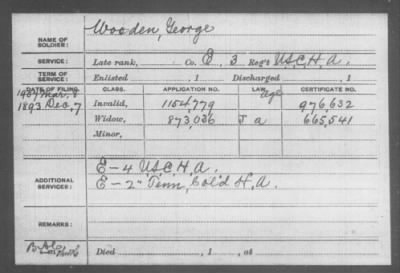 NAME OF SOLDIER: Wooden, George
SERVICE: Late rank, Co. E, 3 Reg't U.S.C.H.A.
TERM OF SERVICE: Enlisted , 1 Discharged , 1
DATE OF FILING. CLASS. APPLICATION NO. LAW. CERTIFICATE NO.
Mar. 8 Invalid, 1154,779 age 976,632
1893 Dec. 7 Widow, 873,036 J a 665,541
Minor,
ADDITIONAL SERVICES: E-4 U.S.C.H.A.
E-2" Tenn. Col'd H.A.
REMARKS:
Died , 1 , at